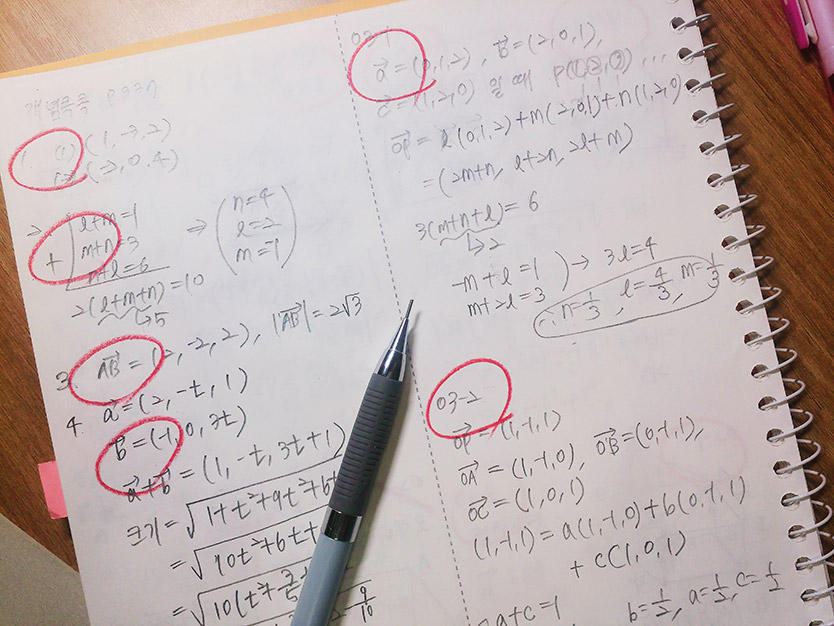 개념콕콕
1. (1) (1, -3, 2)
(2) (-2, 0, 4)
2.
l+m=1
m+n=3
+ n+l=6
2(l+m+n)=10
↳5
⇒ (n=4
l=2
m=-1)
3. AB→ = (2, -2, 2), |AB→| = 2√3
4. a→ = (2, -t, 1)
b→ = (-1, 0, 3t)
a→+b→ = (1, -t, 3t+1)
크기 = √1+t²+9t²+6t
= √10t²+6t+
= √10(t²+
9/10
03-1
a→ = (0,1,2), b→ = (2,0,1),
c→ = (1,2,0) 일 때
OP→ = l(0,1,2)+m(2,0,1)+n(1,2,0)
= (2m+n, l+2n, 2l+m)
3(m+n+l) = 6
↳2
-m+l=1
m+2l=3
) → 3l=4
∴ n=1/3, l=4/3, m=1/3
03-2
OP→ = (1,-1,1)
OA→ = (1,-1,0), OB→ = (0,-1,1),
OC→ = (1,0,1)
(1,-1,1) = a(1,-1,0)+b(0,-1,1)
+ c(1,0,1)
a+c=1
b=1/2, a=1/2, c=1/2